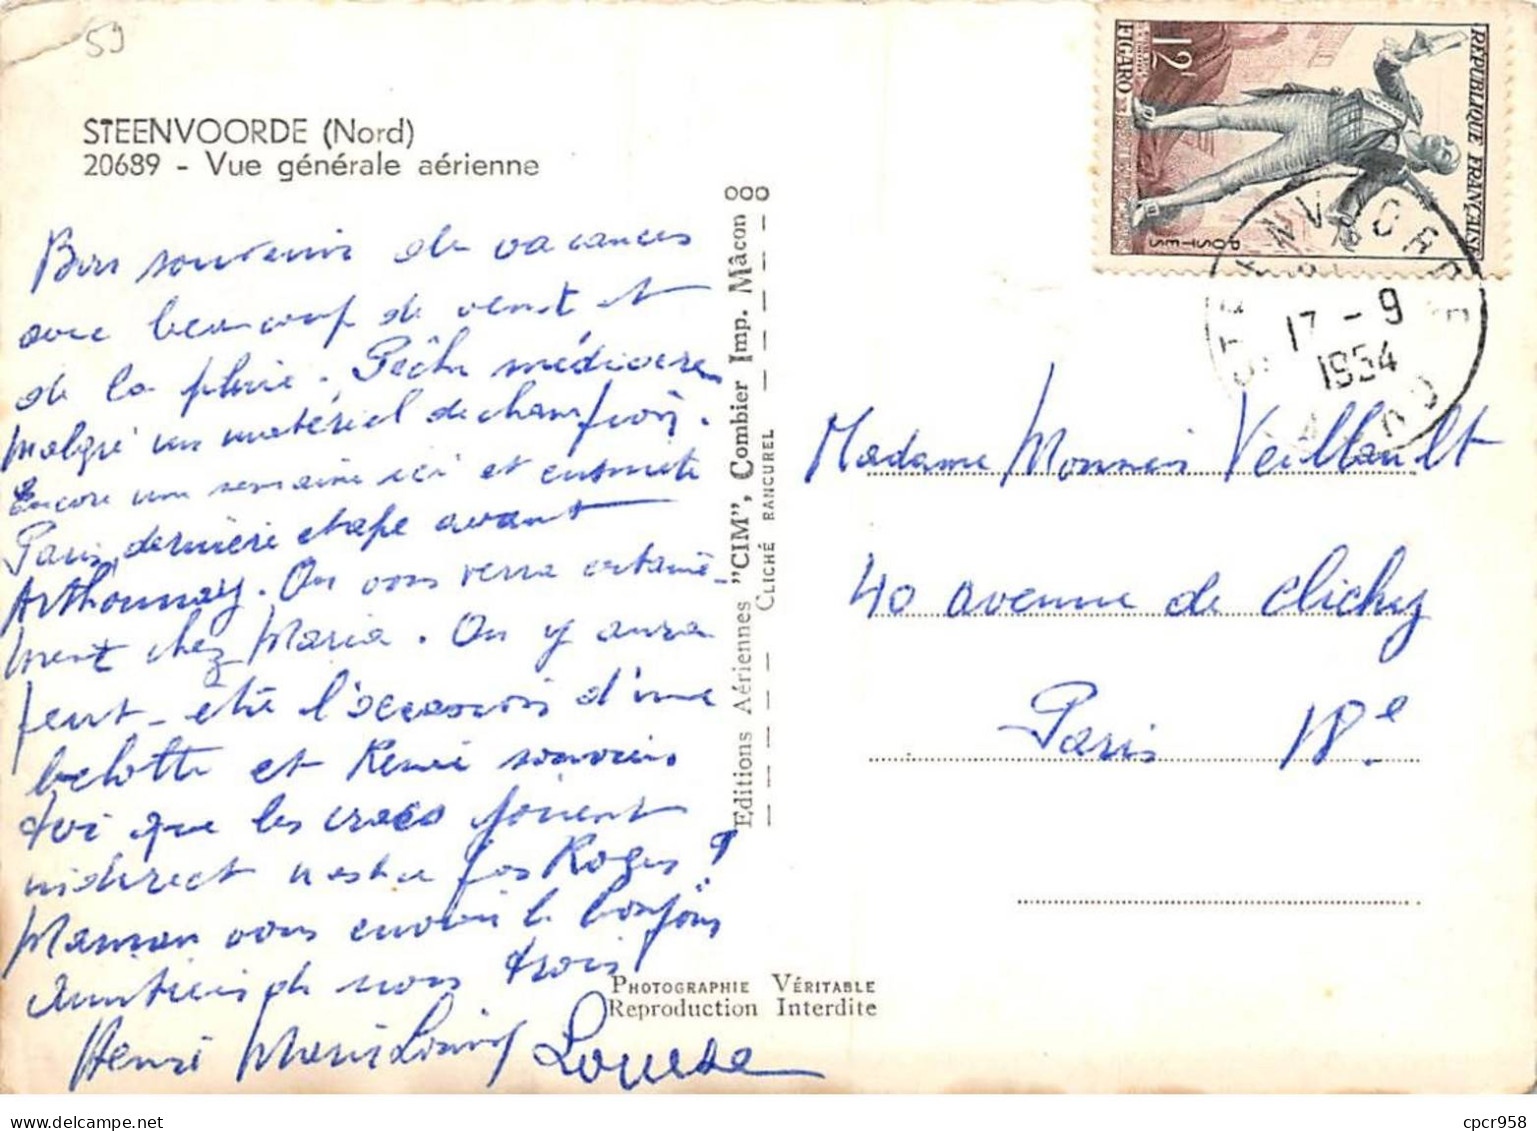 59
STEENVOORDE (Nord)
20689 - Vue générale aérienne
Bon souvenir de vacances
avec beaucoup de vent et
de la pluie. Pêche médiocre
malgré un matériel de champion.
Encore une semaine ici et ensuite
Paris, dernière étape avant
Arthonnay. On vous verra certaine-
ment chez Maria. On y aura
peut-être l'occasion d'une
belotte et René souviens
toi que les crocs jouent
indirect n'est-ce pas Roger ?
Maman vous envoie le bonjour
amitiés de nous trois
Henri Marie Louise Louise
Editions Aériennes "CIM", Combier Imp. Mâcon
CLICHÉ RANCUREL
PHOTOGRAPHIE VÉRITABLE
Reproduction Interdite
RÉPUBLIQUE FRANÇAISE
POSTES
12F
FIGARO
STEENVOORDE
17 - 9
1954
NORD
Madame Monnier Veillault
40 avenue de Clichy
Paris 18e.
cpcr958